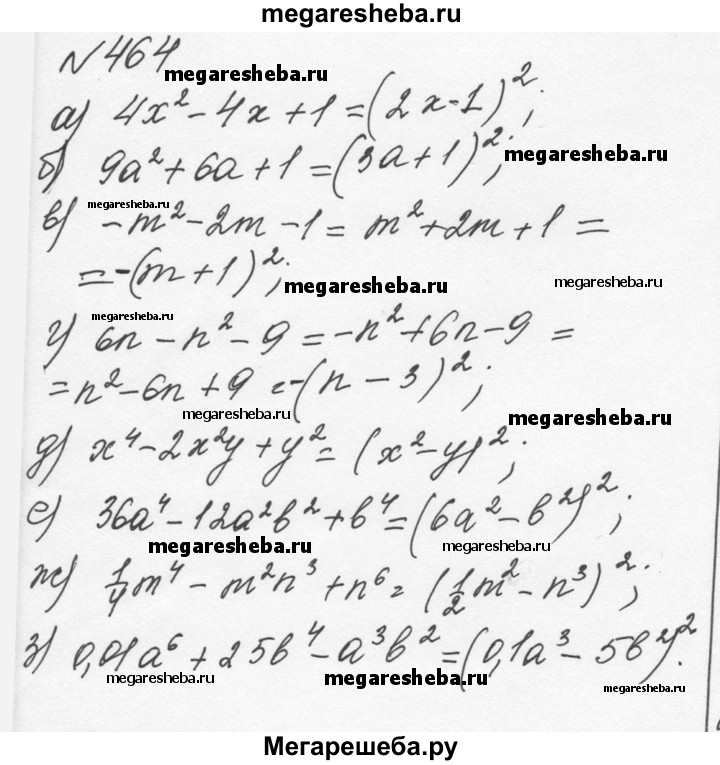 megaresheba.ru
№ 464
megaresheba.ru
а) 4x² - 4x + 1 = (2x - 1)²;
б) 9a² + 6a + 1 = (3a + 1)²; megaresheba.ru
megaresheba.ru
в) -m² - 2m - 1 = m² + 2m + 1 =
= -(m + 1)²; megaresheba.ru megaresheba.ru
megaresheba.ru
г) 6n - n² - 9 = -n² + 6n - 9 =
= n² - 6n + 9 = -(n - 3)²;
megaresheba.ru megaresheba.ru
д) x⁴ - 2x²y + y² = (x² - y)²;
е) 36a⁴ - 12a²b² + b⁴ = (6a² - b²)²;
megaresheba.ru megaresheba.ru
ж) 1/4 m⁴ - m²n³ + n⁶ = (1/2 m² - n³)²;
з) 0,01a⁶ + 25b⁴ - a³b² = (0,1a³ - 5b²)².
megaresheba.ru megaresheba.ru megaresheba.ru
Мегарешеба.ру